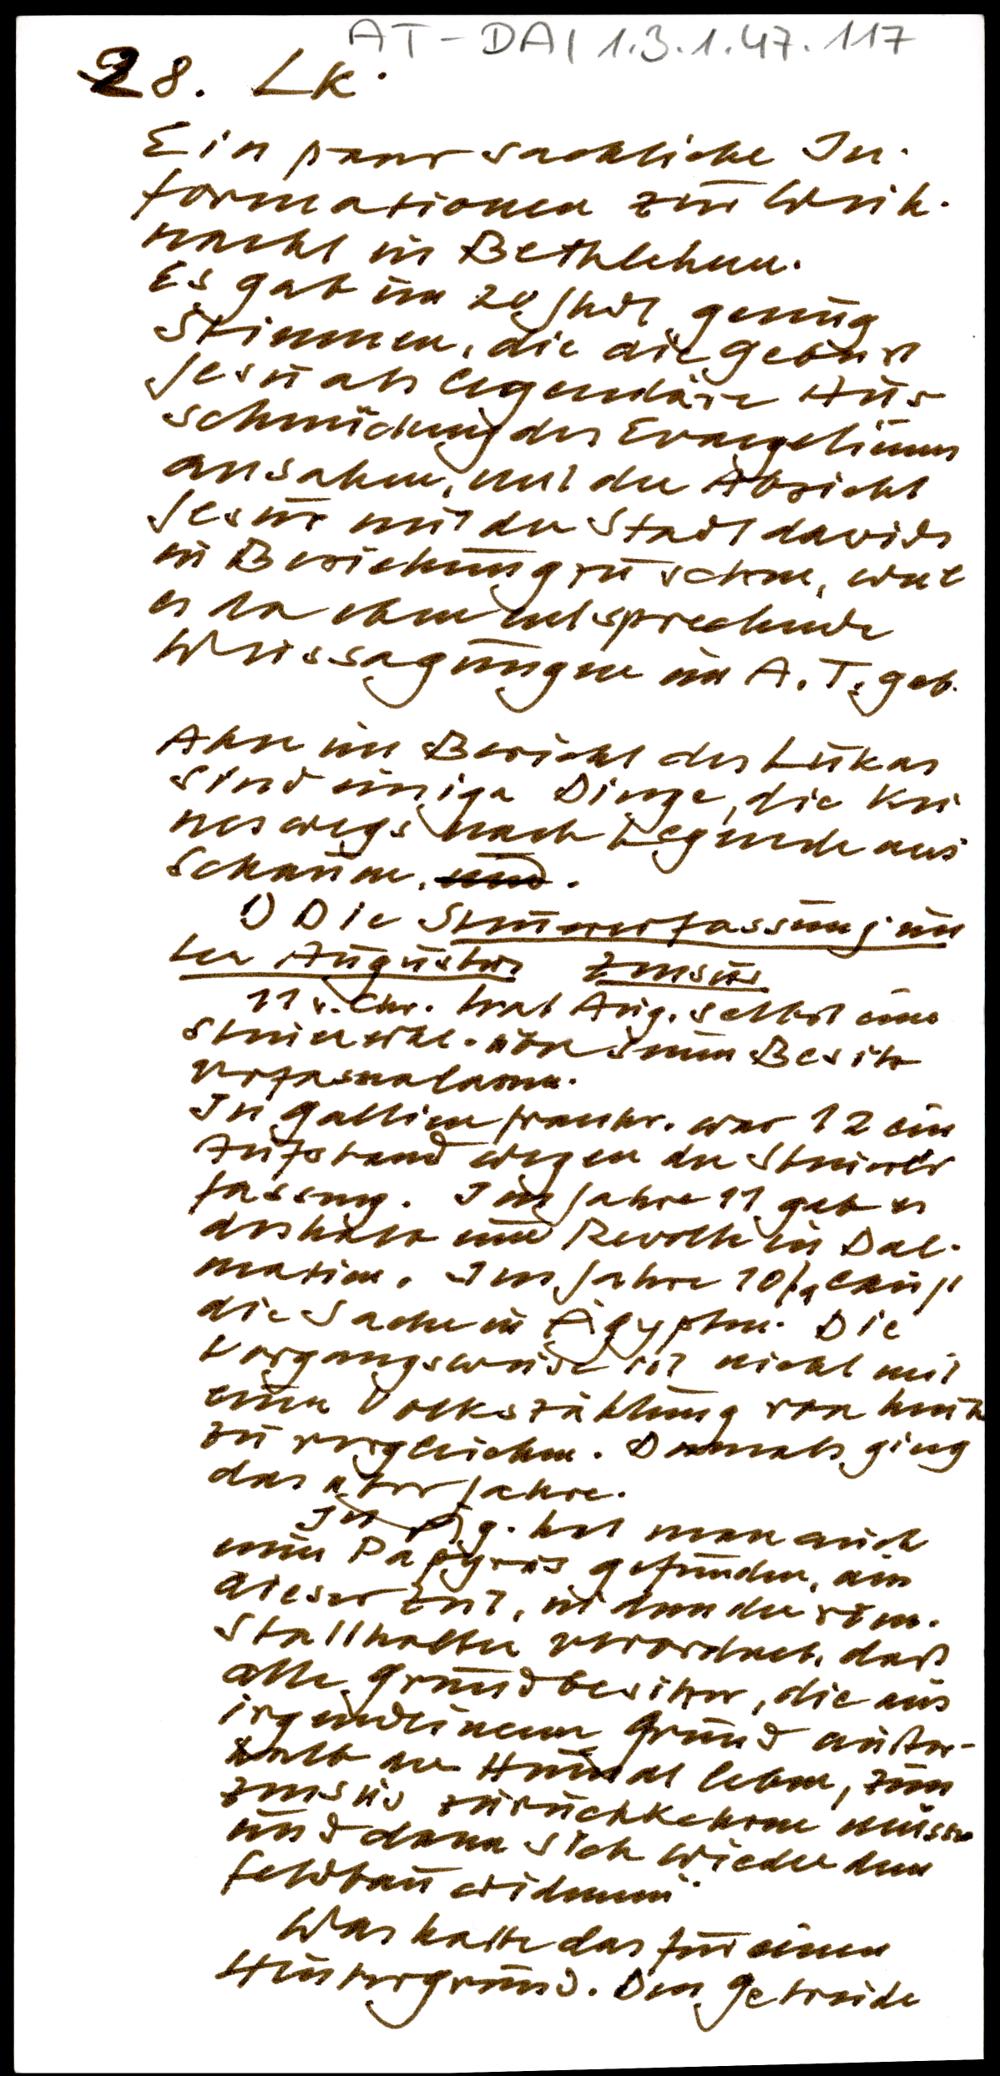 AT-DAI 1.3.1.47.117
28. Lk.
Ein paar sachliche In-
formationen zur Weih-
nacht in Bethlehem.
Es gab im 20 Jhdt genug
Stimmen, die die Geburt
Jesu als legendäre Aus
schmückung des Evangeliums
ansahen, mit der Absicht
Jesus mit der Stadt davids
in Beziehung zu setzen, weil
es da eben entsprechende
Weissagungen im A.T. gab.
Aber im Bericht des Lukas
sind einige Dinge, die kei
neswegs nach Legende aus
schauen. und.
1) Die Steuererfassung un
ter Augustus Zensus
11 v. Chr. trat Aug. selbst eine
Steuererkl. von seinem Besitz
In Gallien frankr. war 12 ein
Aufstand wegen der Steuerer
fassung. Im Jahre 11 gab es
deshalb eine Revolte in Dal-
matien. Im Jahre 10/9 läuft
die Sache in Ägypten. Die
Vorgangsweise ist nicht mit
einer Volkszählung von heute
zu vergleichen. Damals ging
das über Jahre.
In Äg. hat man auch
einen Papyrus gefunden, aus
dieser Zeit, in dem der röm.
Statthalter verordnet, daß
alle Grundbesitzer, die aus
irgendeinem Grund außer-
halb der Heimat leben, zum
Zensus zurückkehren müssen
und dann sich wieder dem
Feldbau widmen
Was hatte das für einen
Hintergrund. Den Getreide